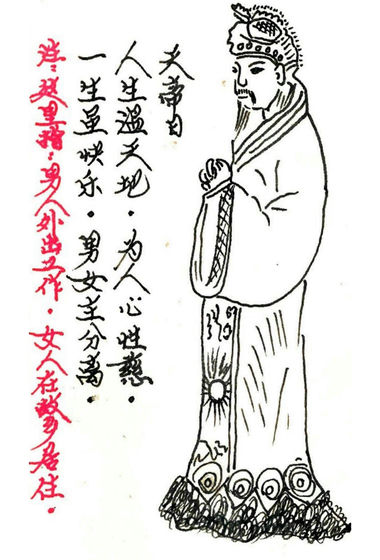 帝曰
人生天地。为人心性慈。
一生虽快乐。男女主分离。
注:这里指:男人外出工作。女人在故乡居住。